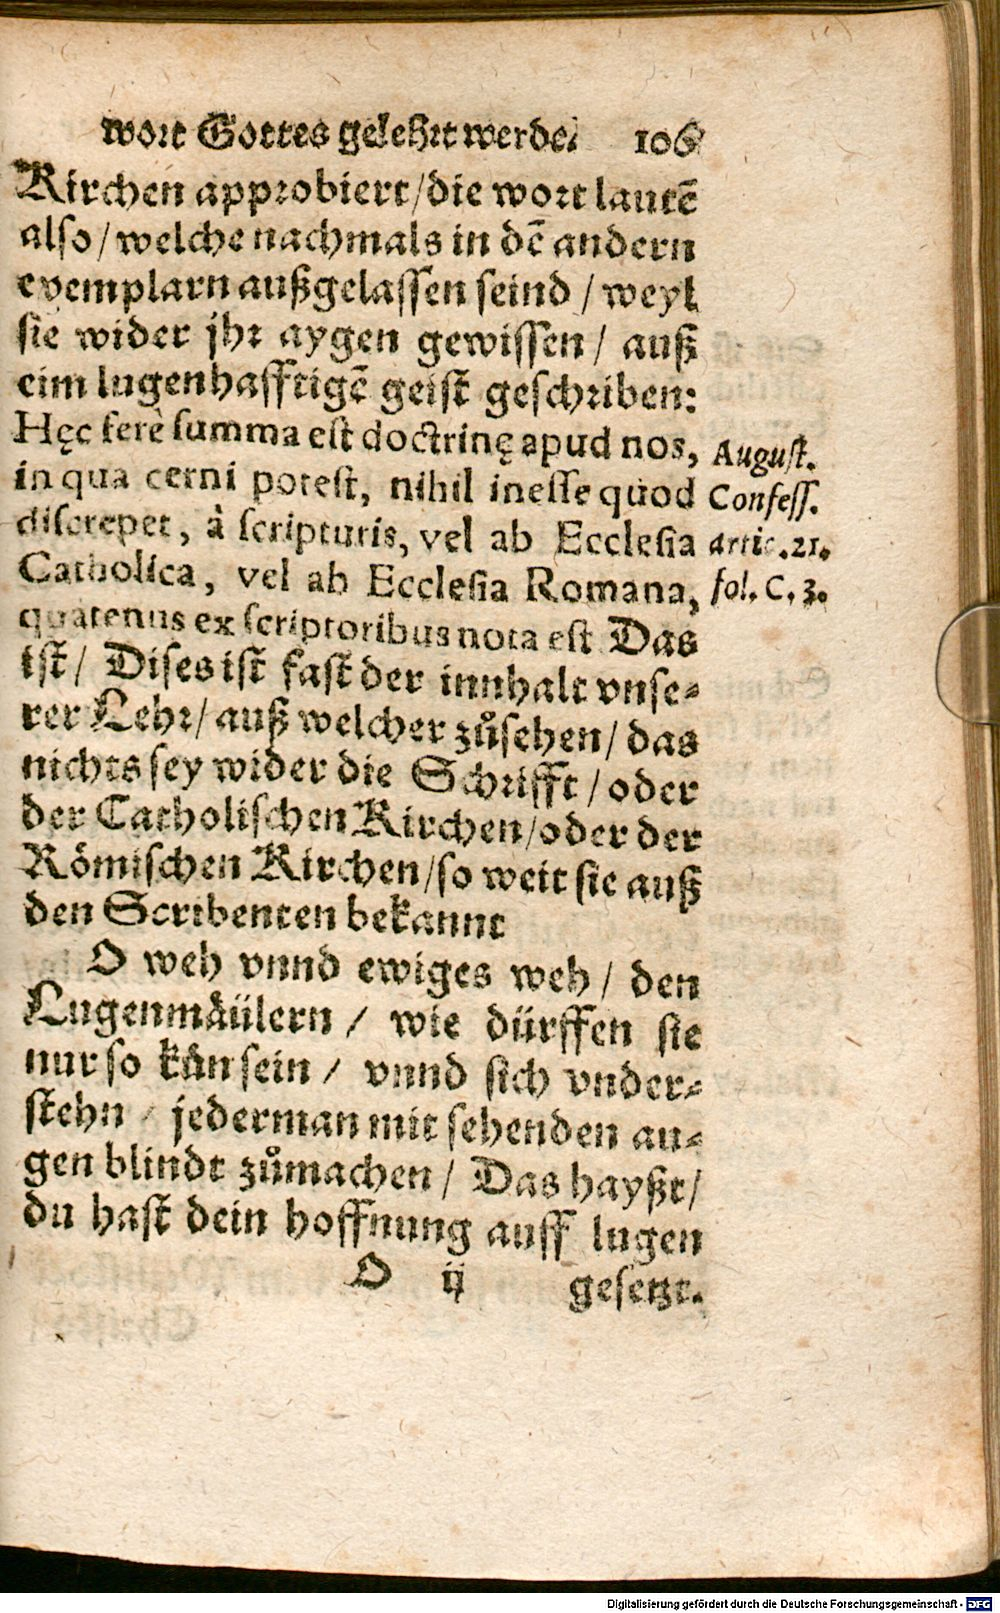 wort Gottes gelehrt werdē. 106
Kirchen approbiert/die wort lautē
also/welche nachmals in dē andern
exemplarn außgelassen seind/weyl
sie wider jhr aygen gewissen/auß
eim lugenhafftigē geist geschriben:
Hęc ferè summa est doctrinę apud nos,
August.
in qua cerni potest, nihil inesse quod
Confess.
discrepet, à scripturis, vel ab Ecclesia
artic.21.
Catholica, vel ab Ecclesia Romana,
fol. C. 3.
quatenus ex scriptoribus nota est Das
ist/ Dises ist fast der innhalt vnse-
rer Lehr/auß welcher zůsehen/das
nichts sey wider die Schrifft/oder
der Catholischen Kirchen/oder der
Römischen Kirchen/so weit sie auß
den Scribenten bekannt
O weh vnnd ewiges weh/den
Lugenmäülern/ wie dürffen sie
nur so kůn sein/ vnnd sich vnder-
stehn/ jederman mit sehenden au-
gen blindt zůmachen/ Das hayßt/
du hast dein hoffnung auff lugen
O ij gesetzt.
Digitalisierung gefördert durch die Deutsche Forschungsgemeinschaft - DFG